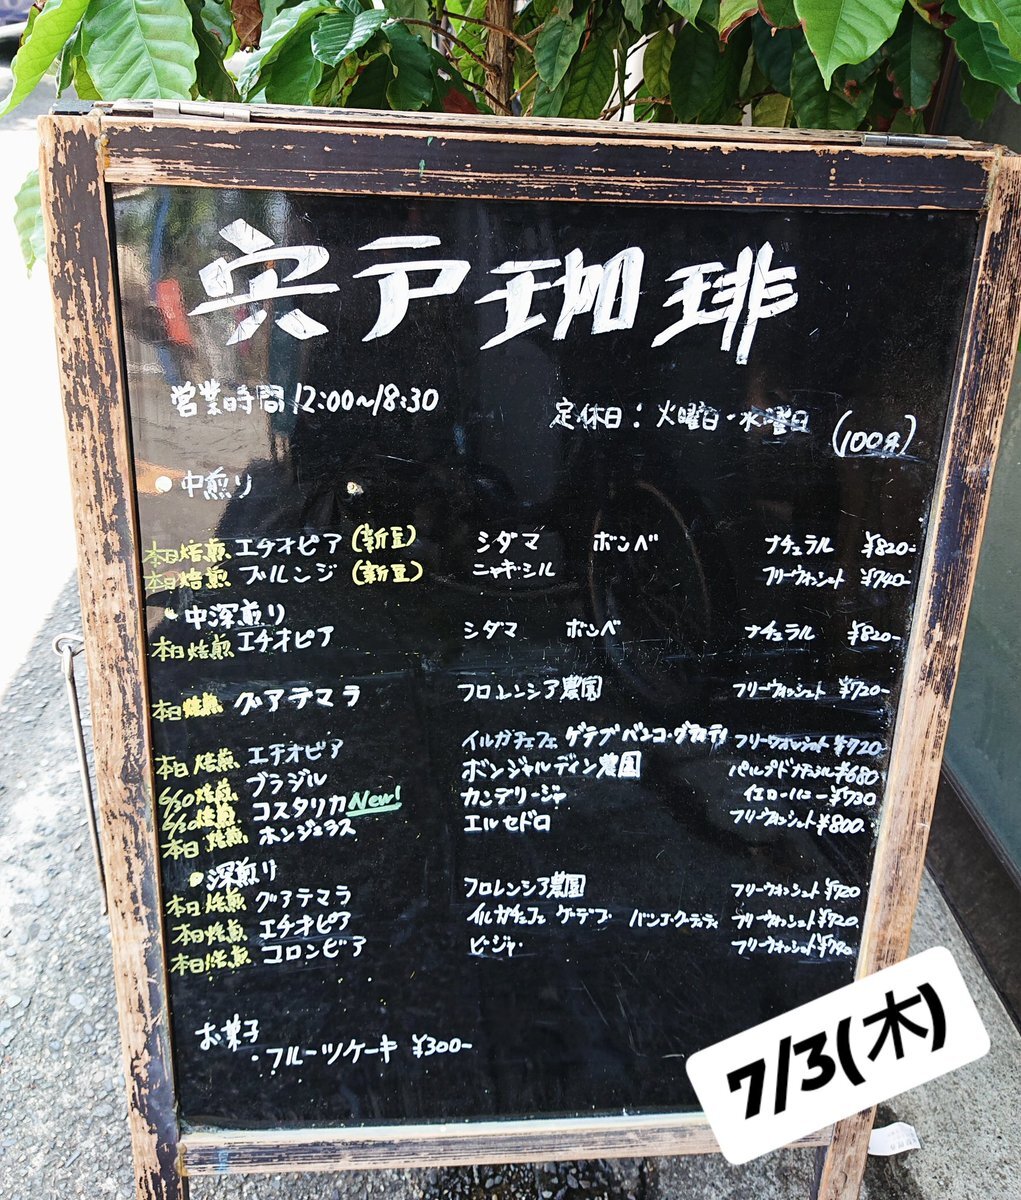 宍戸珈琲
営業時間 12:00〜18:30
定休日：火曜日・水曜日 (100g)
● 中煎り
本日焙煎 エチオピア (新豆) シダマ ボンベ ナチュラル ¥820-
本日焙煎 ブルンジ (新豆) ニャギ・シル フリーウォッシュト ¥740-
・中深煎り
本日焙煎 エチオピア シダマ ボンベ ナチュラル ¥820-
本日焙煎 グアテマラ フロレンシア農園 フリーウォッシュト ¥720-
本日焙煎 エチオピア イルガチェフェ ゲデブ バンコ・ゴティティ フリーウォッシュト ¥720-
6/30焙煎 ブラジル ボンジャルディン農園 パルプドナチュラル ¥680
6/30焙煎 コスタリカ New! カンデリージャ イエローハニー ¥730
本日焙煎 ホンジュラス エルセドロ フリーウォッシュト ¥800.
● 深煎り
本日焙煎 グアテマラ フロレンシア農園 フリーウォッシュト ¥720
本日焙煎 エチオピア イルガチェフェ ゲデブ フリーウォッシュト ¥720
本日焙煎 コロンビア ビージャ フリーウォッシュト
お菓子
・フルーツケーキ ¥300-
7/3(木)